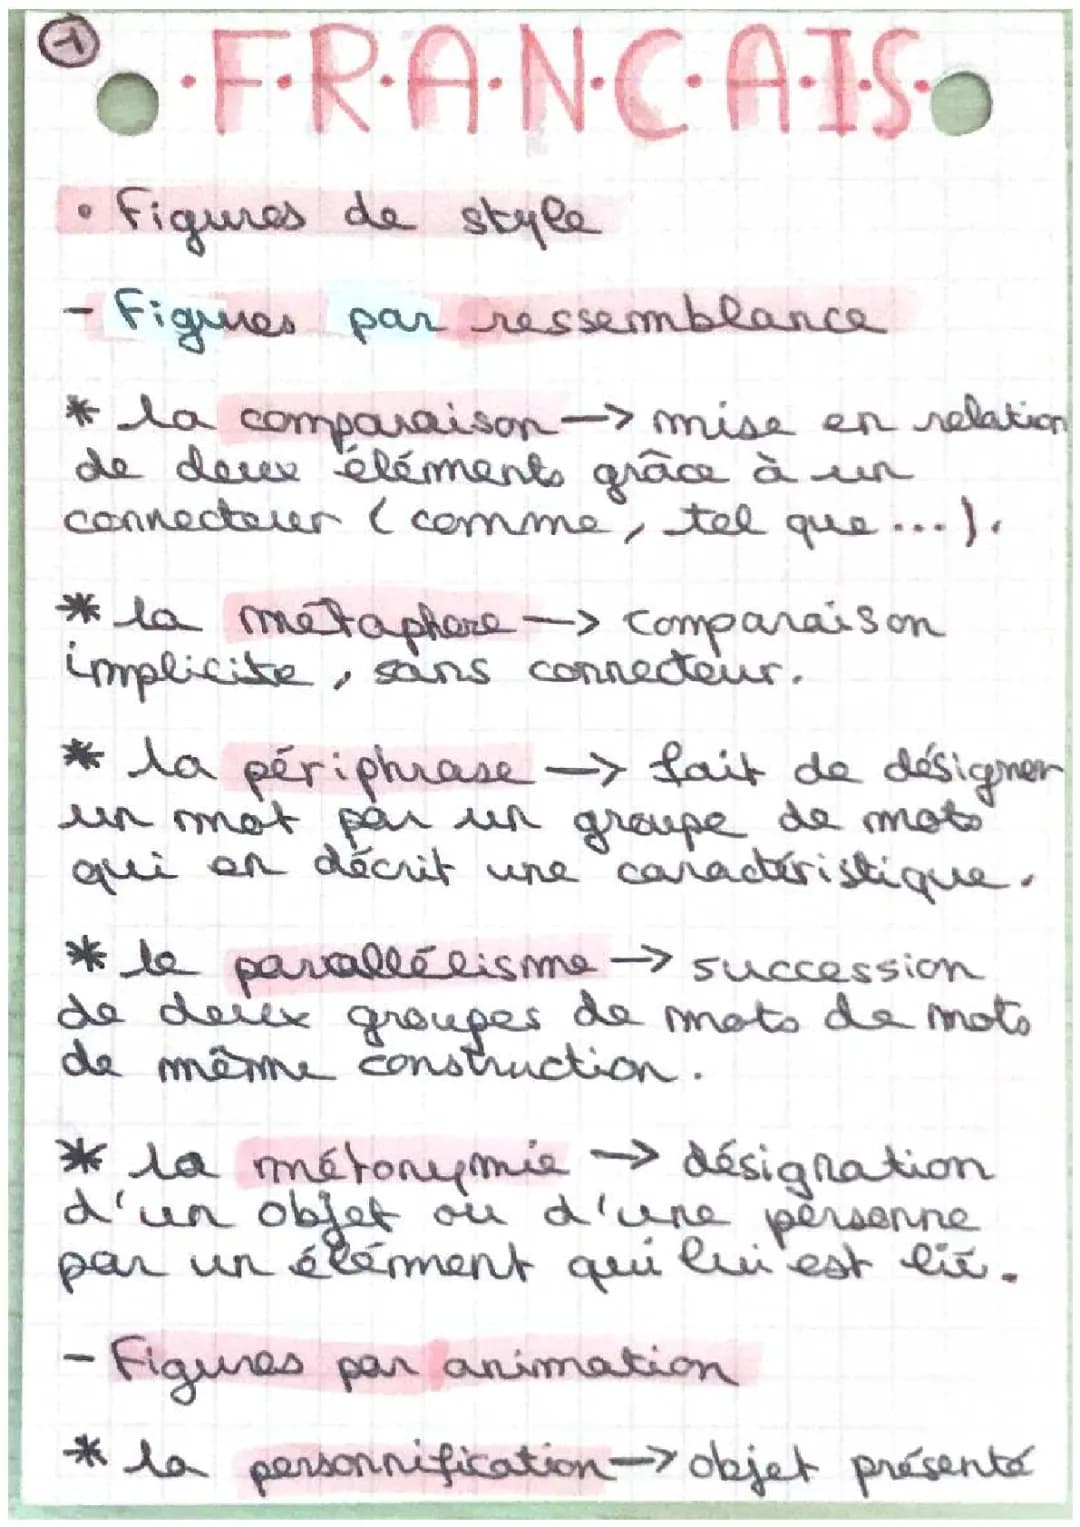 1
·F·R·A·N·C·A·I·S·
• Figures de style
- Figures par ressemblance
* la comparaison -> mise en relation
de deux éléments grâce à un
connecteur (comme, tel que...).
* la métaphore -> comparaison
implicite, sans connecteur.
* la périphrase -> fait de désigner
un mot par un groupe de mots
qui en décrit une caractéristique.
* le parallélisme -> succession
de deux groupes de mots de mots
de même construction.
* la métonymie -> désignation
d'un objet ou d'une personne
par un élément qui lui est lié.
- Figures par animation
* la personnification -> objet présenté